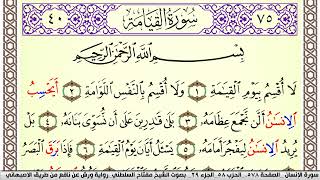 ٧٥ سُورَةُ الْقِيَامَةِ ٤٠
بِسْمِ اللَّهِ الرَّحْمَٰنِ الرَّحِيمِ
لَا أُقْسِمُ بِيَوْمِ الْقِيَٰمَةِ ١ وَلَا أُقْسِمُ بِالنَّفْسِ اللَّوَّامَةِ ٢ أَيَحْسِبُ
الْإِنسَٰنُ أَلَّن نَّجْمَعَ عِظَامَهُ ٣ بَلَىٰ قَٰدِرِينَ عَلَىٰ أَن نُّسَوِّيَ بَنَانَهُ ٤ بَلْ
يُرِيدُ الْإِنسَٰنُ لِيَفْجُرَ أَمَامَهُ ٥ يَسْـَٔلُ أَيَّانَ يَوْمُ الْقِيَٰمَةِ ٦ فَإِذَا بَرَقَ الْبَصَرُ
سورة الانسان الصفحة ٥٧٨ الحزب ٥٨ الجزء ٢٩ بصوت الشيخ مفتاح السلطني رواية ورش عن نافع من طريق الاصبهاني